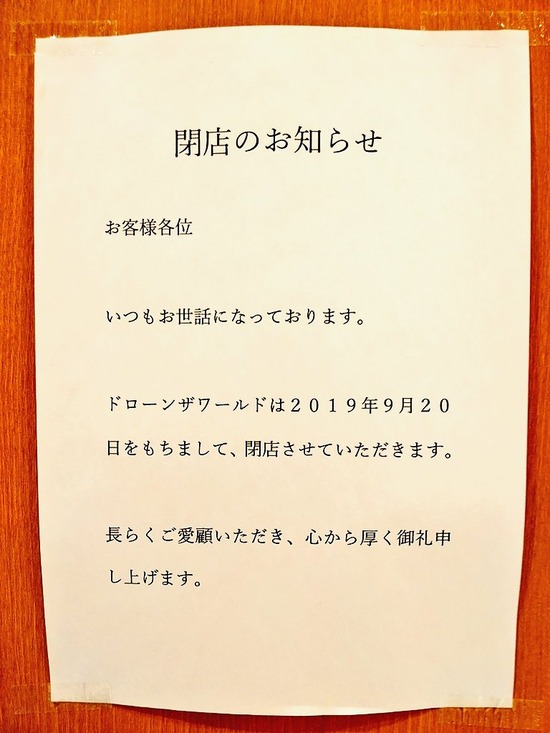 閉店のお知らせ
お客様各位
いつもお世話になっております。
ドローンザワールドは２０１９年９月２０
日をもちまして、閉店させていただきます。
長らくご愛顧いただき、心から厚く御礼申
し上げます。